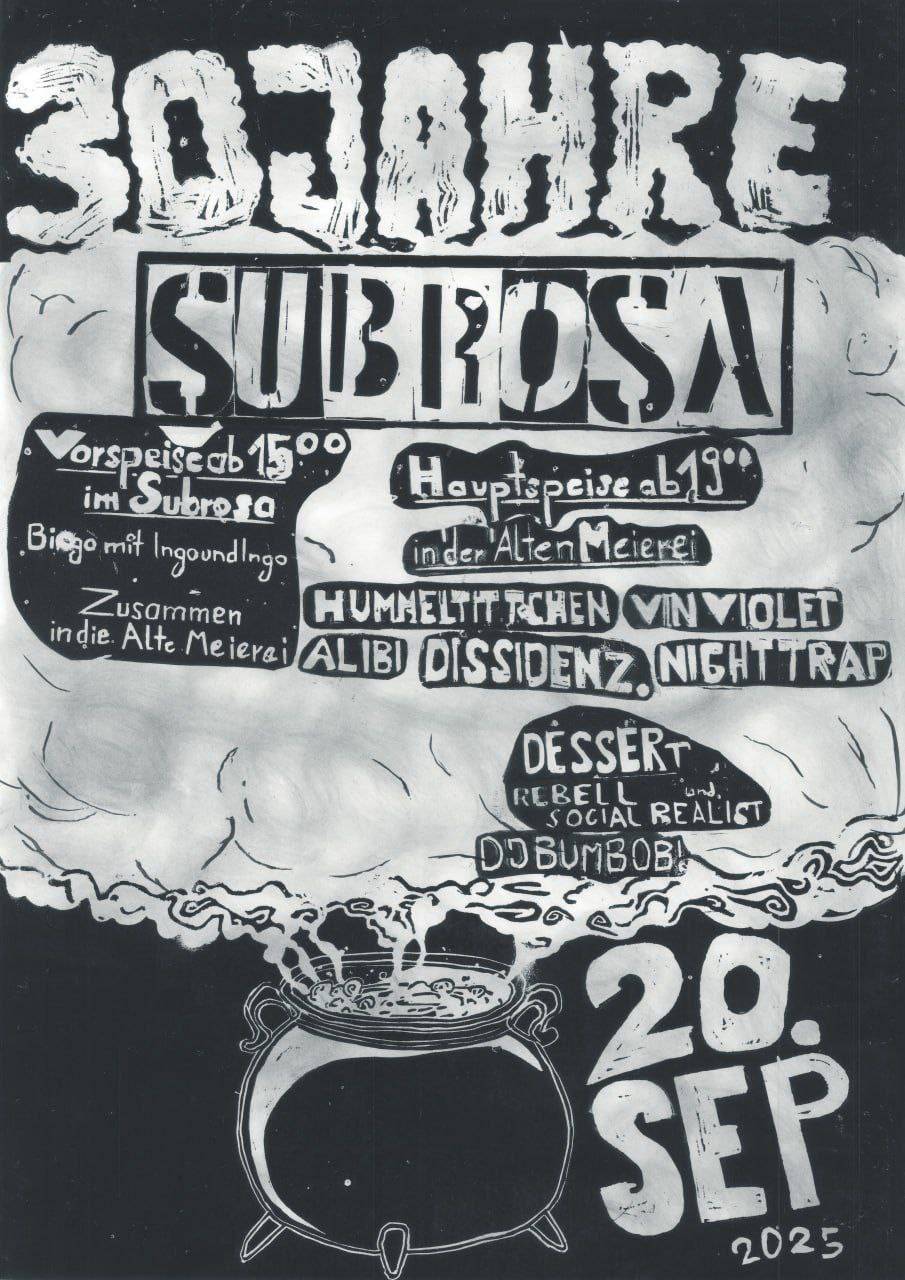 30 JAHRE
SUBROSA
Vorspeise ab 15⁰⁰
im Subrosa
Bingo mit Ingo und Ingo
Zusammen
in die Alte Meierei
Hauptspeise ab 19⁰⁰
in der Alten Meierei
HUMMELTITTCHEN VIN VIOLET
ALIBI DISSIDENZ. NIGHT TRAP
DESSERT
REBELL und
SOCIAL REALIST
DJ BUMBOBI
20.
SEP
2025